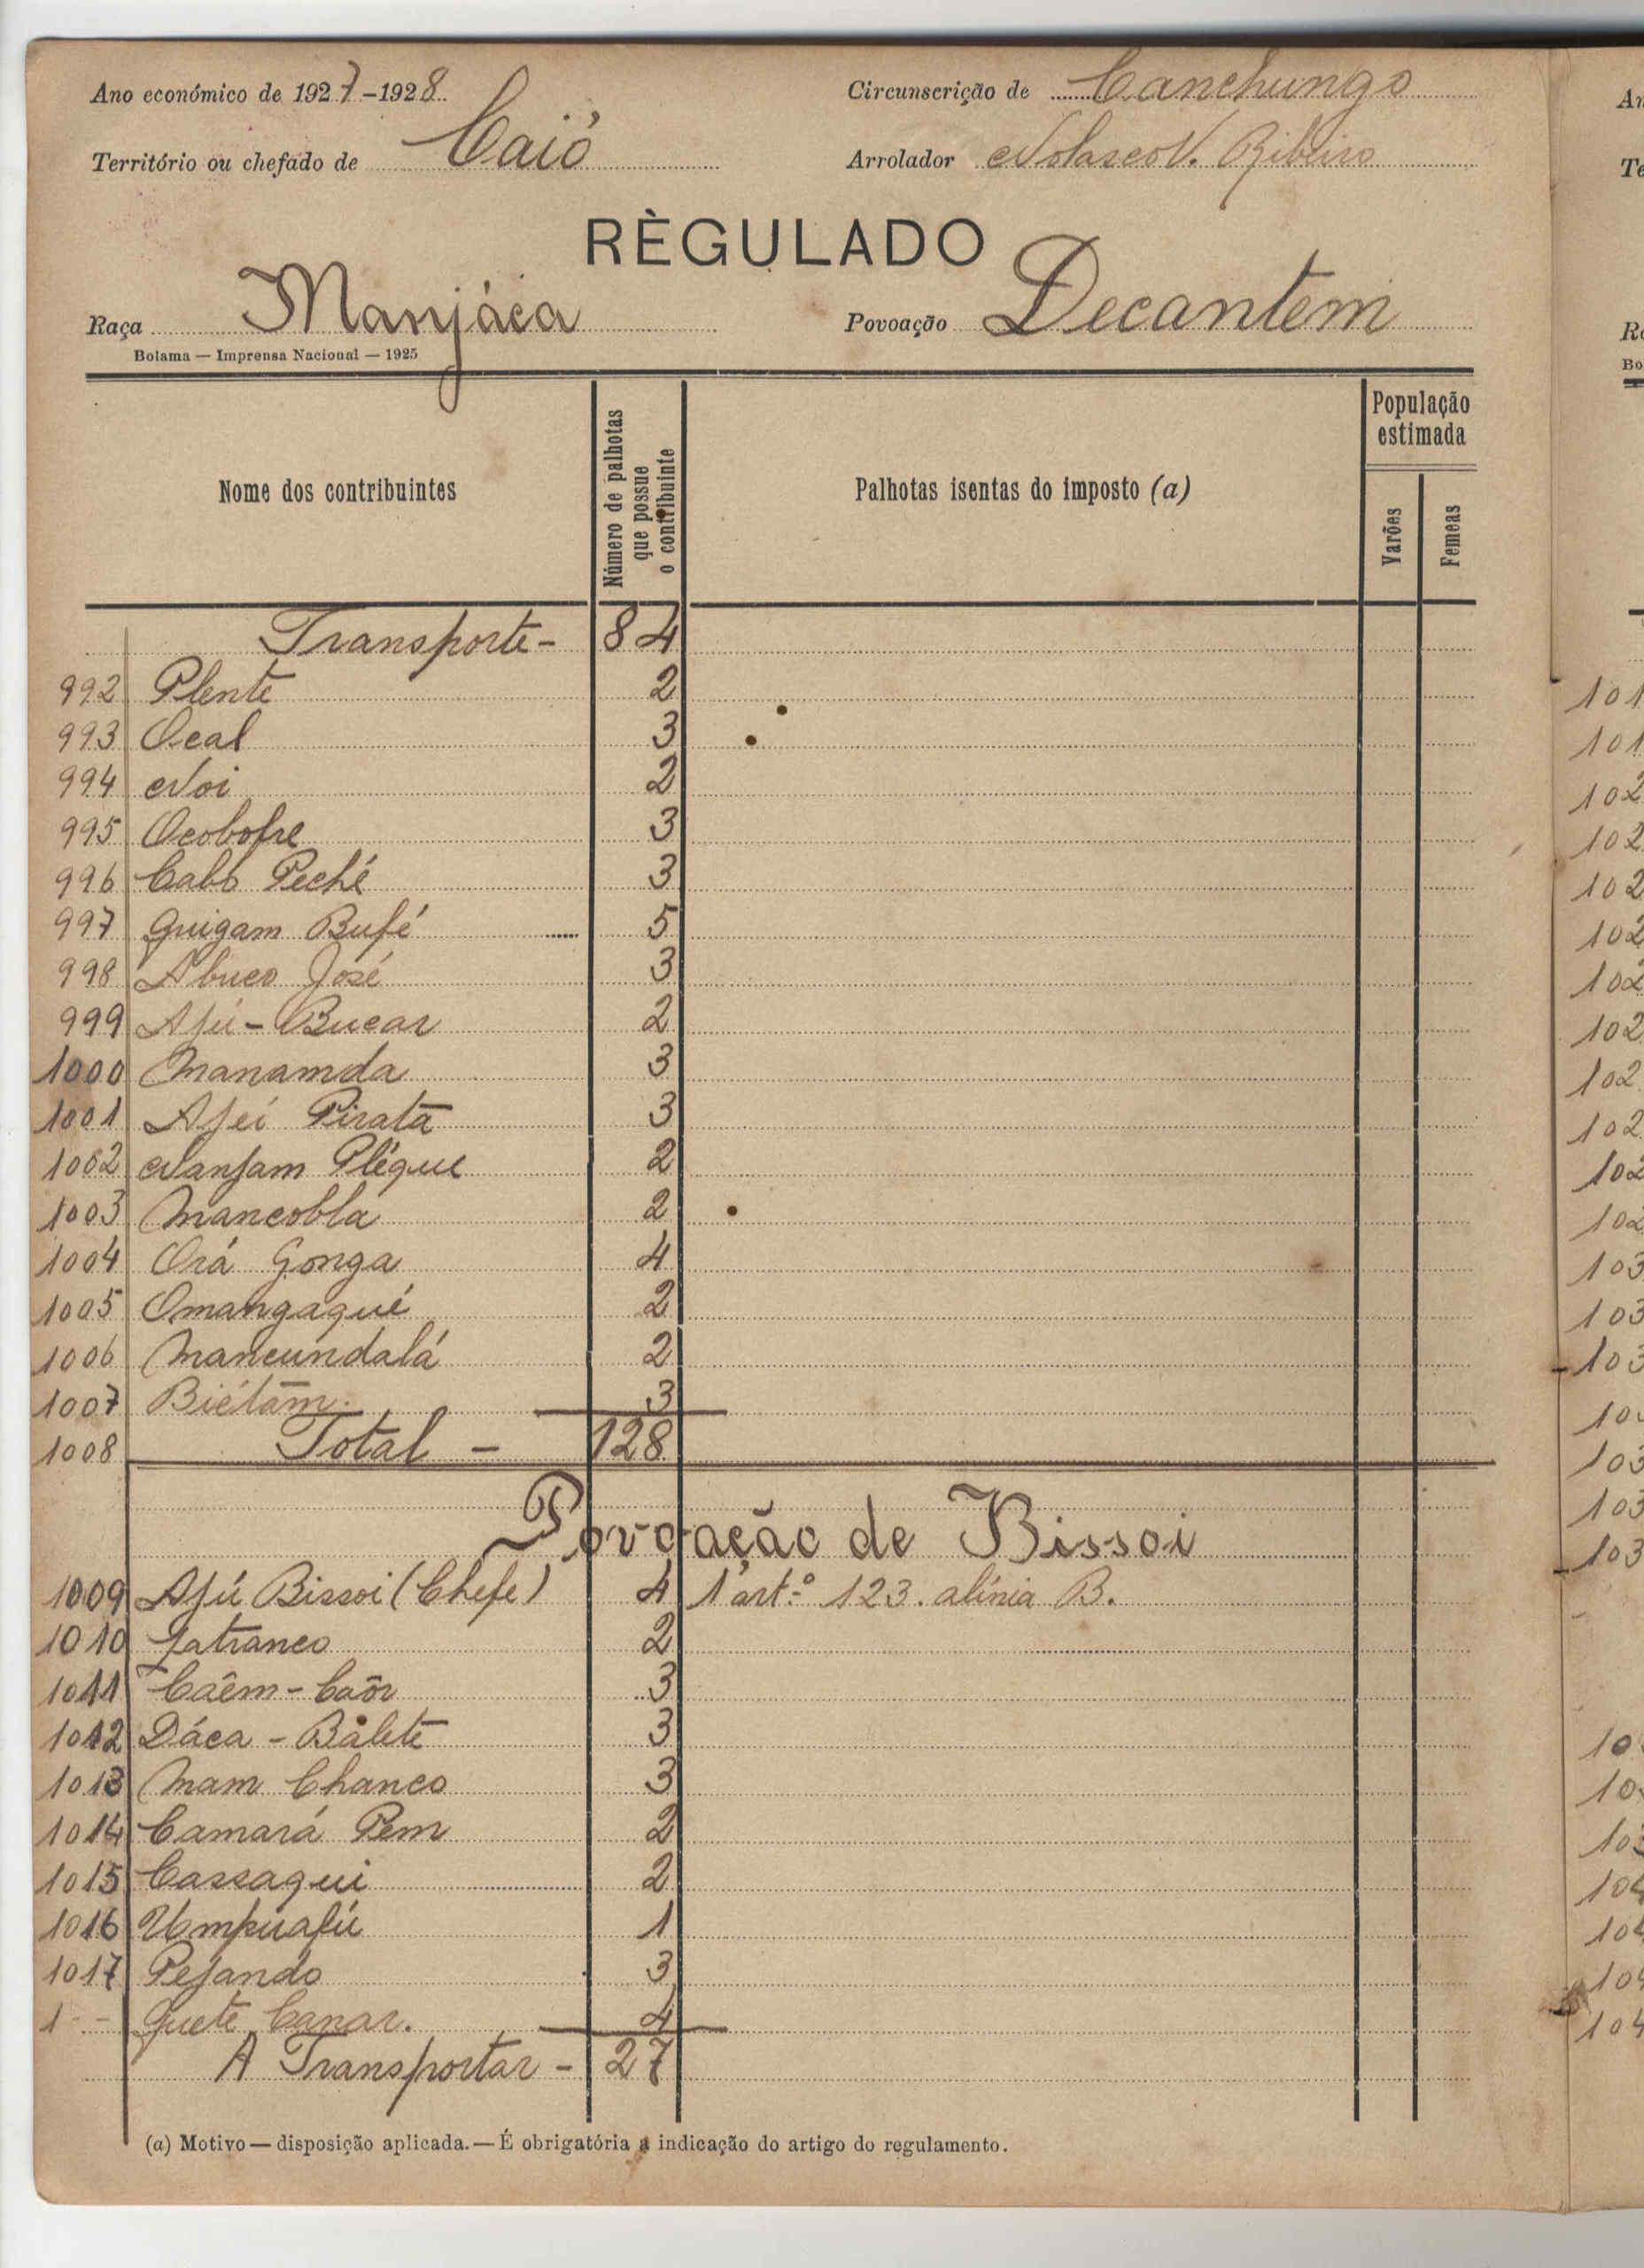 Ano económico de 1927-1928
Circunscrição de Canchungo
Território ou chefado de Caió
Arrolador Nolasco V. Ribeiro
RÈGULADO
Raça Manjáca
Povoação Decantem
Bolama — Imprensa Nacional — 1925
Nome dos contribuintes
Número de palhotas que possue o contribuinte
Palhotas isentas do imposto (a)
População estimada
Varões
Femeas
Transporte - 84
992 Plente 2
993 Ocal 3
994 Noi 2
995 Ocobofre 3
996 Cabb Peché 3
997 Guigam Bufé 5
998 Abuco José 3
999 Afú - Bucar 2
1000 Manamda 3
1001 Afei Pirata 3
1002 Nanfam Pléque 2
1003 Mancobla 2
1004 Orá Gonga 4
1005 Omangaqué 2
1006 Mancundalá 2
1007 Biétam. 3
1008 Total - 128
Povoação de Bissoi
1009 Afú Bissoi (Chefe) 4 1 art.º 123. alínia B.
1010 Jatranco 2
1011 Caêm - Caôr 3
1012 Dáca - Balete 3
1013 Mam Chanco 3
1014 Camará Pem 2
1015 Cassaqui 2
1016 Umpuafú 1
1017 Pefando 3
1 - - Guete Canar. 4
A Transportar - 27
(a) Motivo — disposição aplicada. — É obrigatória a indicação do artigo do regulamento.
An
Te
Ra
Bo
101
101
102
102
102
102
102
102
102
102
102
102
103
103
103
10
103
103
103
10
10
103
104
104
104
104